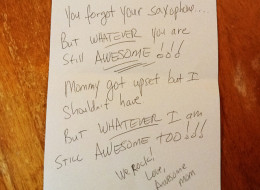 You forgot your saxophone...
But WHATEVER you are
Still AWESOME!!!
Mommy got upset but I
Shouldn't have
But WHATEVER I am
STILL AWESOME TOO!!!
We Rock!
Love,
Awesome
Mom